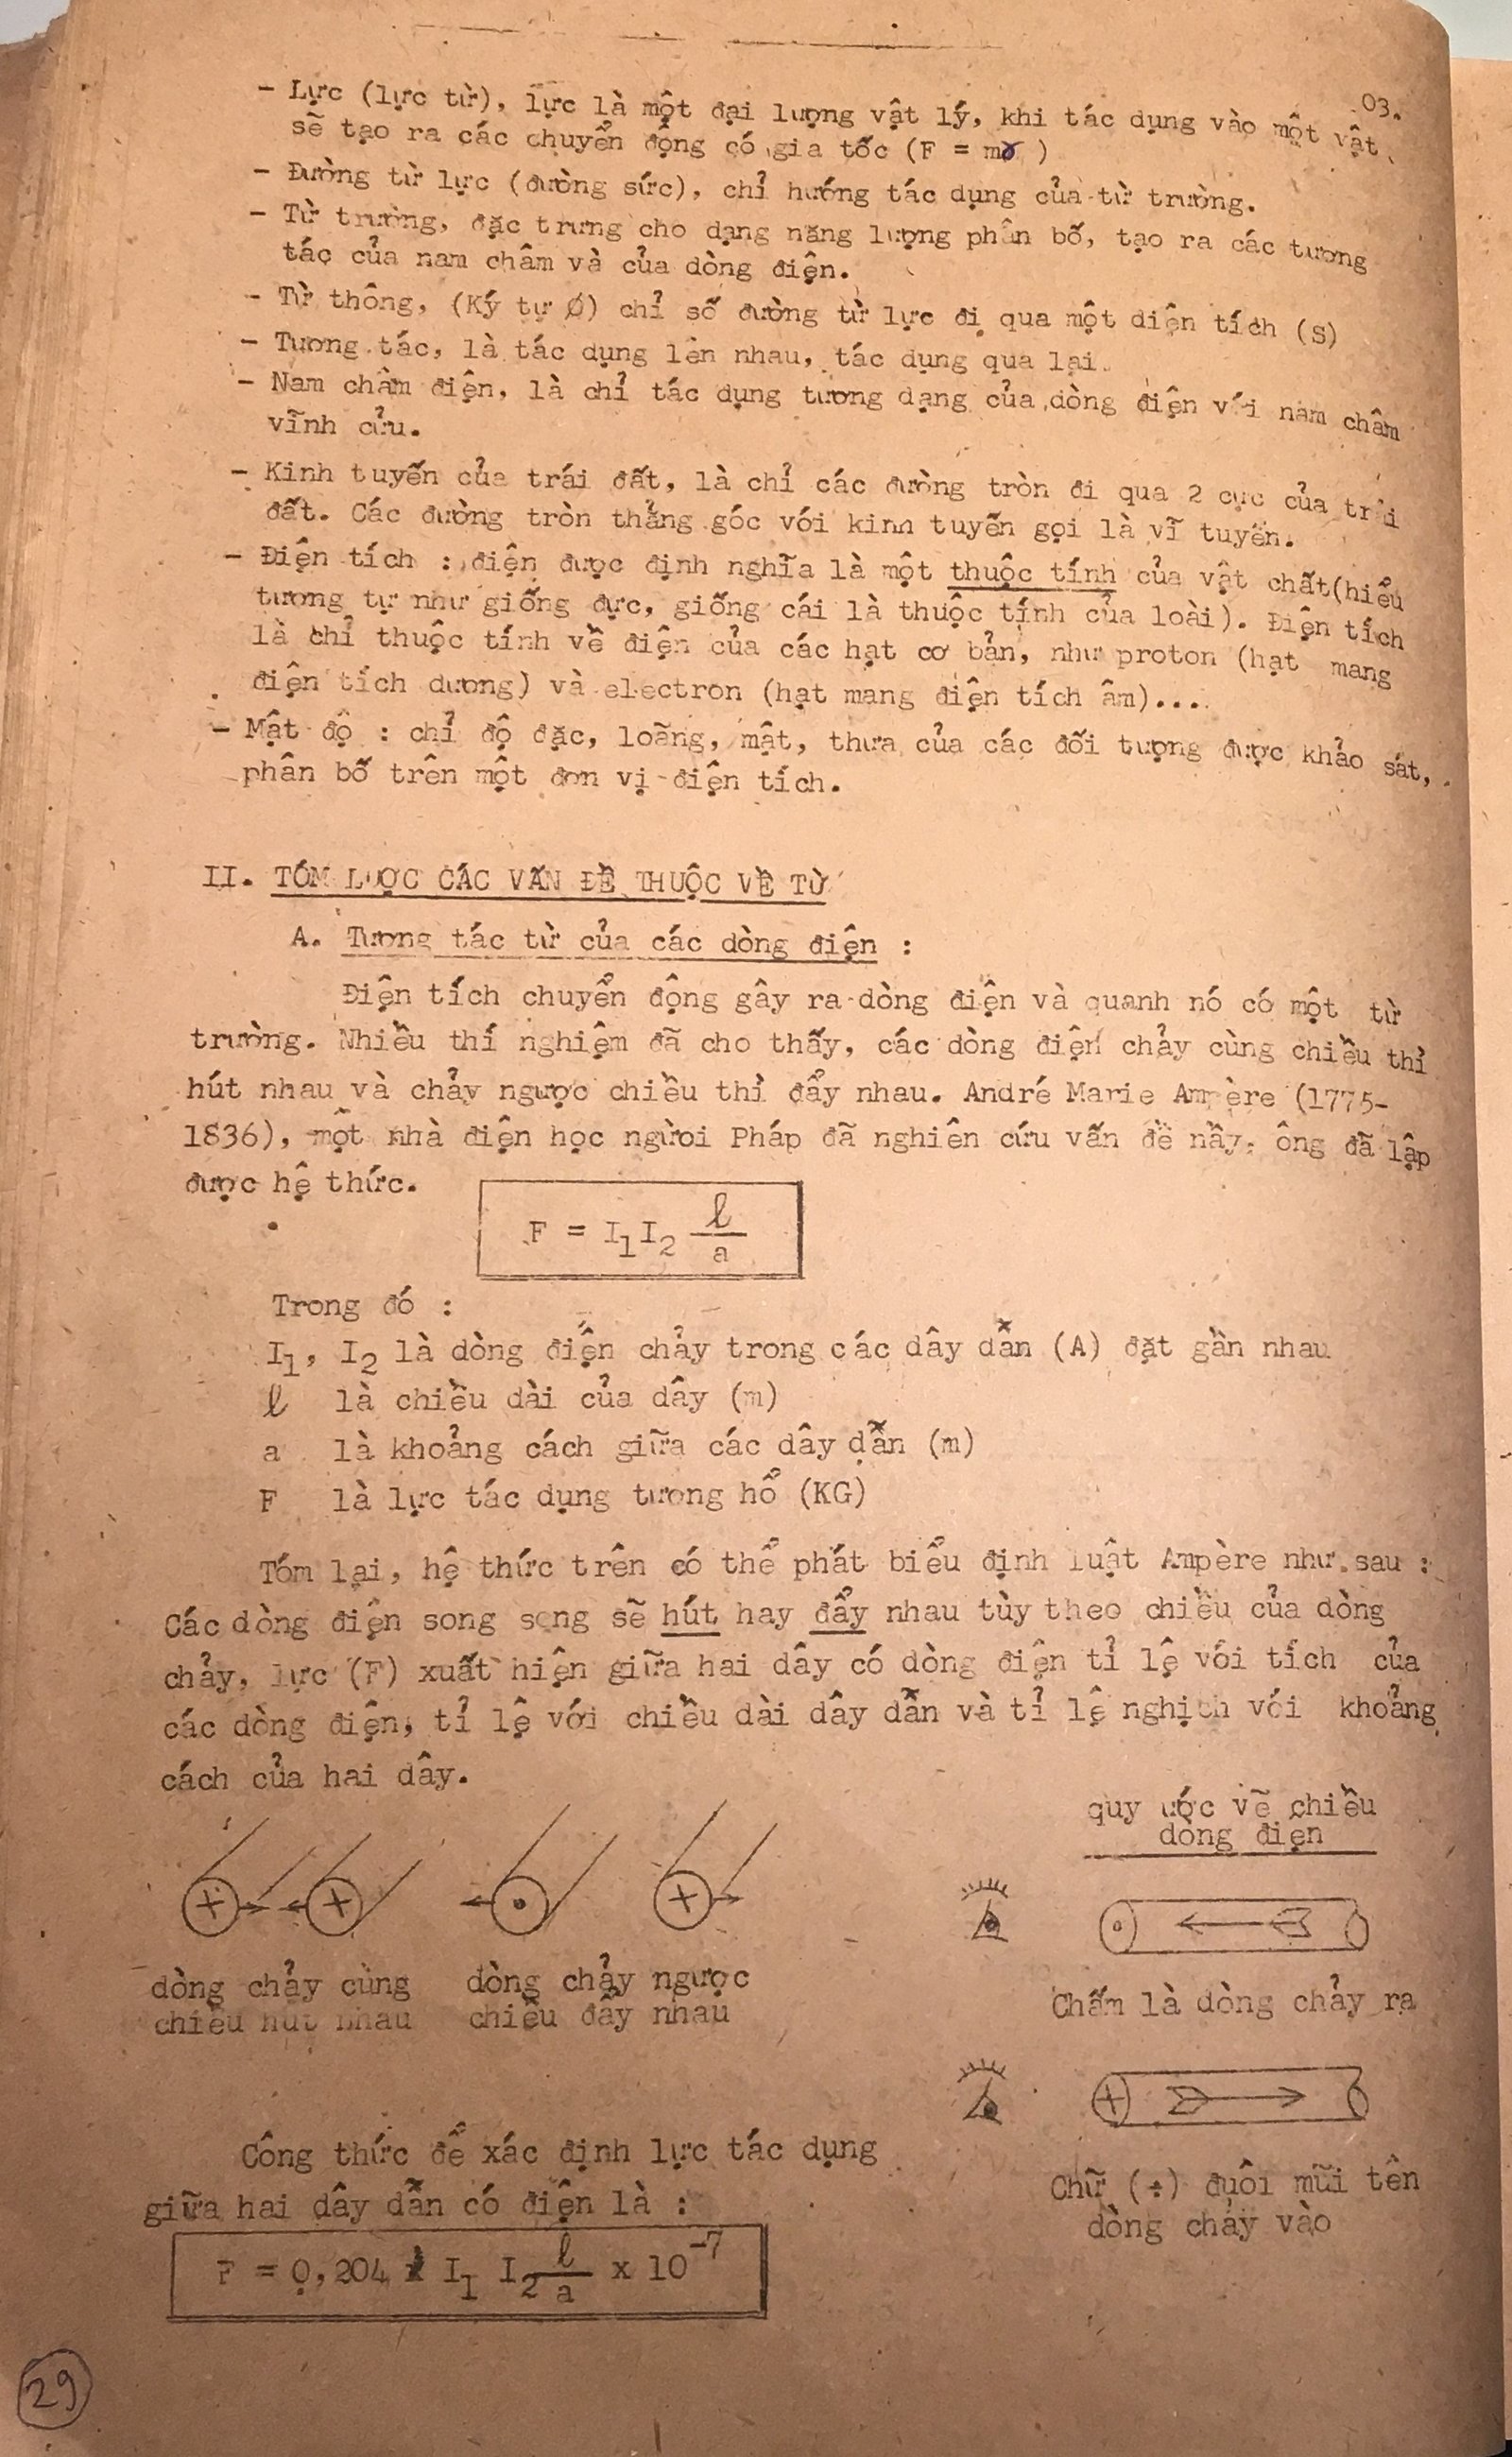 03.
- Lực (lực từ), lực là một đại lượng vật lý, khi tác dụng vào một vật
sẽ tạo ra các chuyển động có gia tốc (F = mγ )
- Đường từ lực (đường sức), chỉ hướng tác dụng của từ trường.
- Từ trường, đặc trưng cho dạng năng lượng phân bố, tạo ra các tương
tác của nam châm và của dòng điện.
- Từ thông, (Ký tự Ø) chỉ số đường từ lực đi qua một diện tích (S)
- Tương tác, là tác dụng lên nhau, tác dụng qua lại.
- Nam châm điện, là chỉ tác dụng tương dạng của dòng điện với nam châm
vĩnh cửu.
- Kinh tuyến của trái đất, là chỉ các đường tròn đi qua 2 cực của trái
đất. Các đường tròn thẳng góc với kinh tuyến gọi là vĩ tuyến.
- Điện tích : điện được định nghĩa là một thuộc tính của vật chất(hiểu
tương tự như giống đực, giống cái là thuộc tính của loài). Điện tích
là chỉ thuộc tính về điện của các hạt cơ bản, như proton (hạt mang
điện tích dương) và electron (hạt mang điện tích âm)...
- Mật độ : chỉ độ đặc, loãng, mật, thưa của các đối tượng được khảo sát,
phân bố trên một đơn vị điện tích.
II. TÓM LƯỢC CÁC VẤN ĐỀ THUỘC VỀ TỪ
A. Tương tác từ của các dòng điện :
Điện tích chuyển động gây ra dòng điện và quanh nó có một từ
trường. Nhiều thí nghiệm đã cho thấy, các dòng điện chảy cùng chiều thì
hút nhau và chảy ngược chiều thì đẩy nhau. André Marie Ampère (1775-
1836), một nhà điện học người Pháp đã nghiên cứu vấn đề nầy. ông đã lập
được hệ thức.
F = I₁I₂ ℓ/a
Trong đó :
I₁, I₂ là dòng điện chảy trong các dây dẫn (A) đặt gần nhau
ℓ là chiều dài của dây (m)
a là khoảng cách giữa các dây dẫn (m)
F là lực tác dụng tương hổ (KG)
Tóm lại, hệ thức trên có thể phát biểu định luật Ampère như sau :
Các dòng điện song song sẽ hút hay đẩy nhau tùy theo chiều của dòng
chảy, lực (F) xuất hiện giữa hai dây có dòng điện tỉ lệ với tích của
các dòng điện, tỉ lệ với chiều dài dây dẫn và tỉ lệ nghịch với khoảng
cách của hai dây.
quy ước vẽ chiều
dòng điện
dòng chảy cùng
chiều hút nhau
dòng chảy ngược
chiều đẩy nhau
Chấm là dòng chảy ra
Công thức để xác định lực tác dụng
giữa hai dây dẫn có điện là :
Chữ (+) đuôi mũi tên
dòng chảy vào
F = 0,204 I₁ I₂ ℓ/a x 10⁻⁷
29